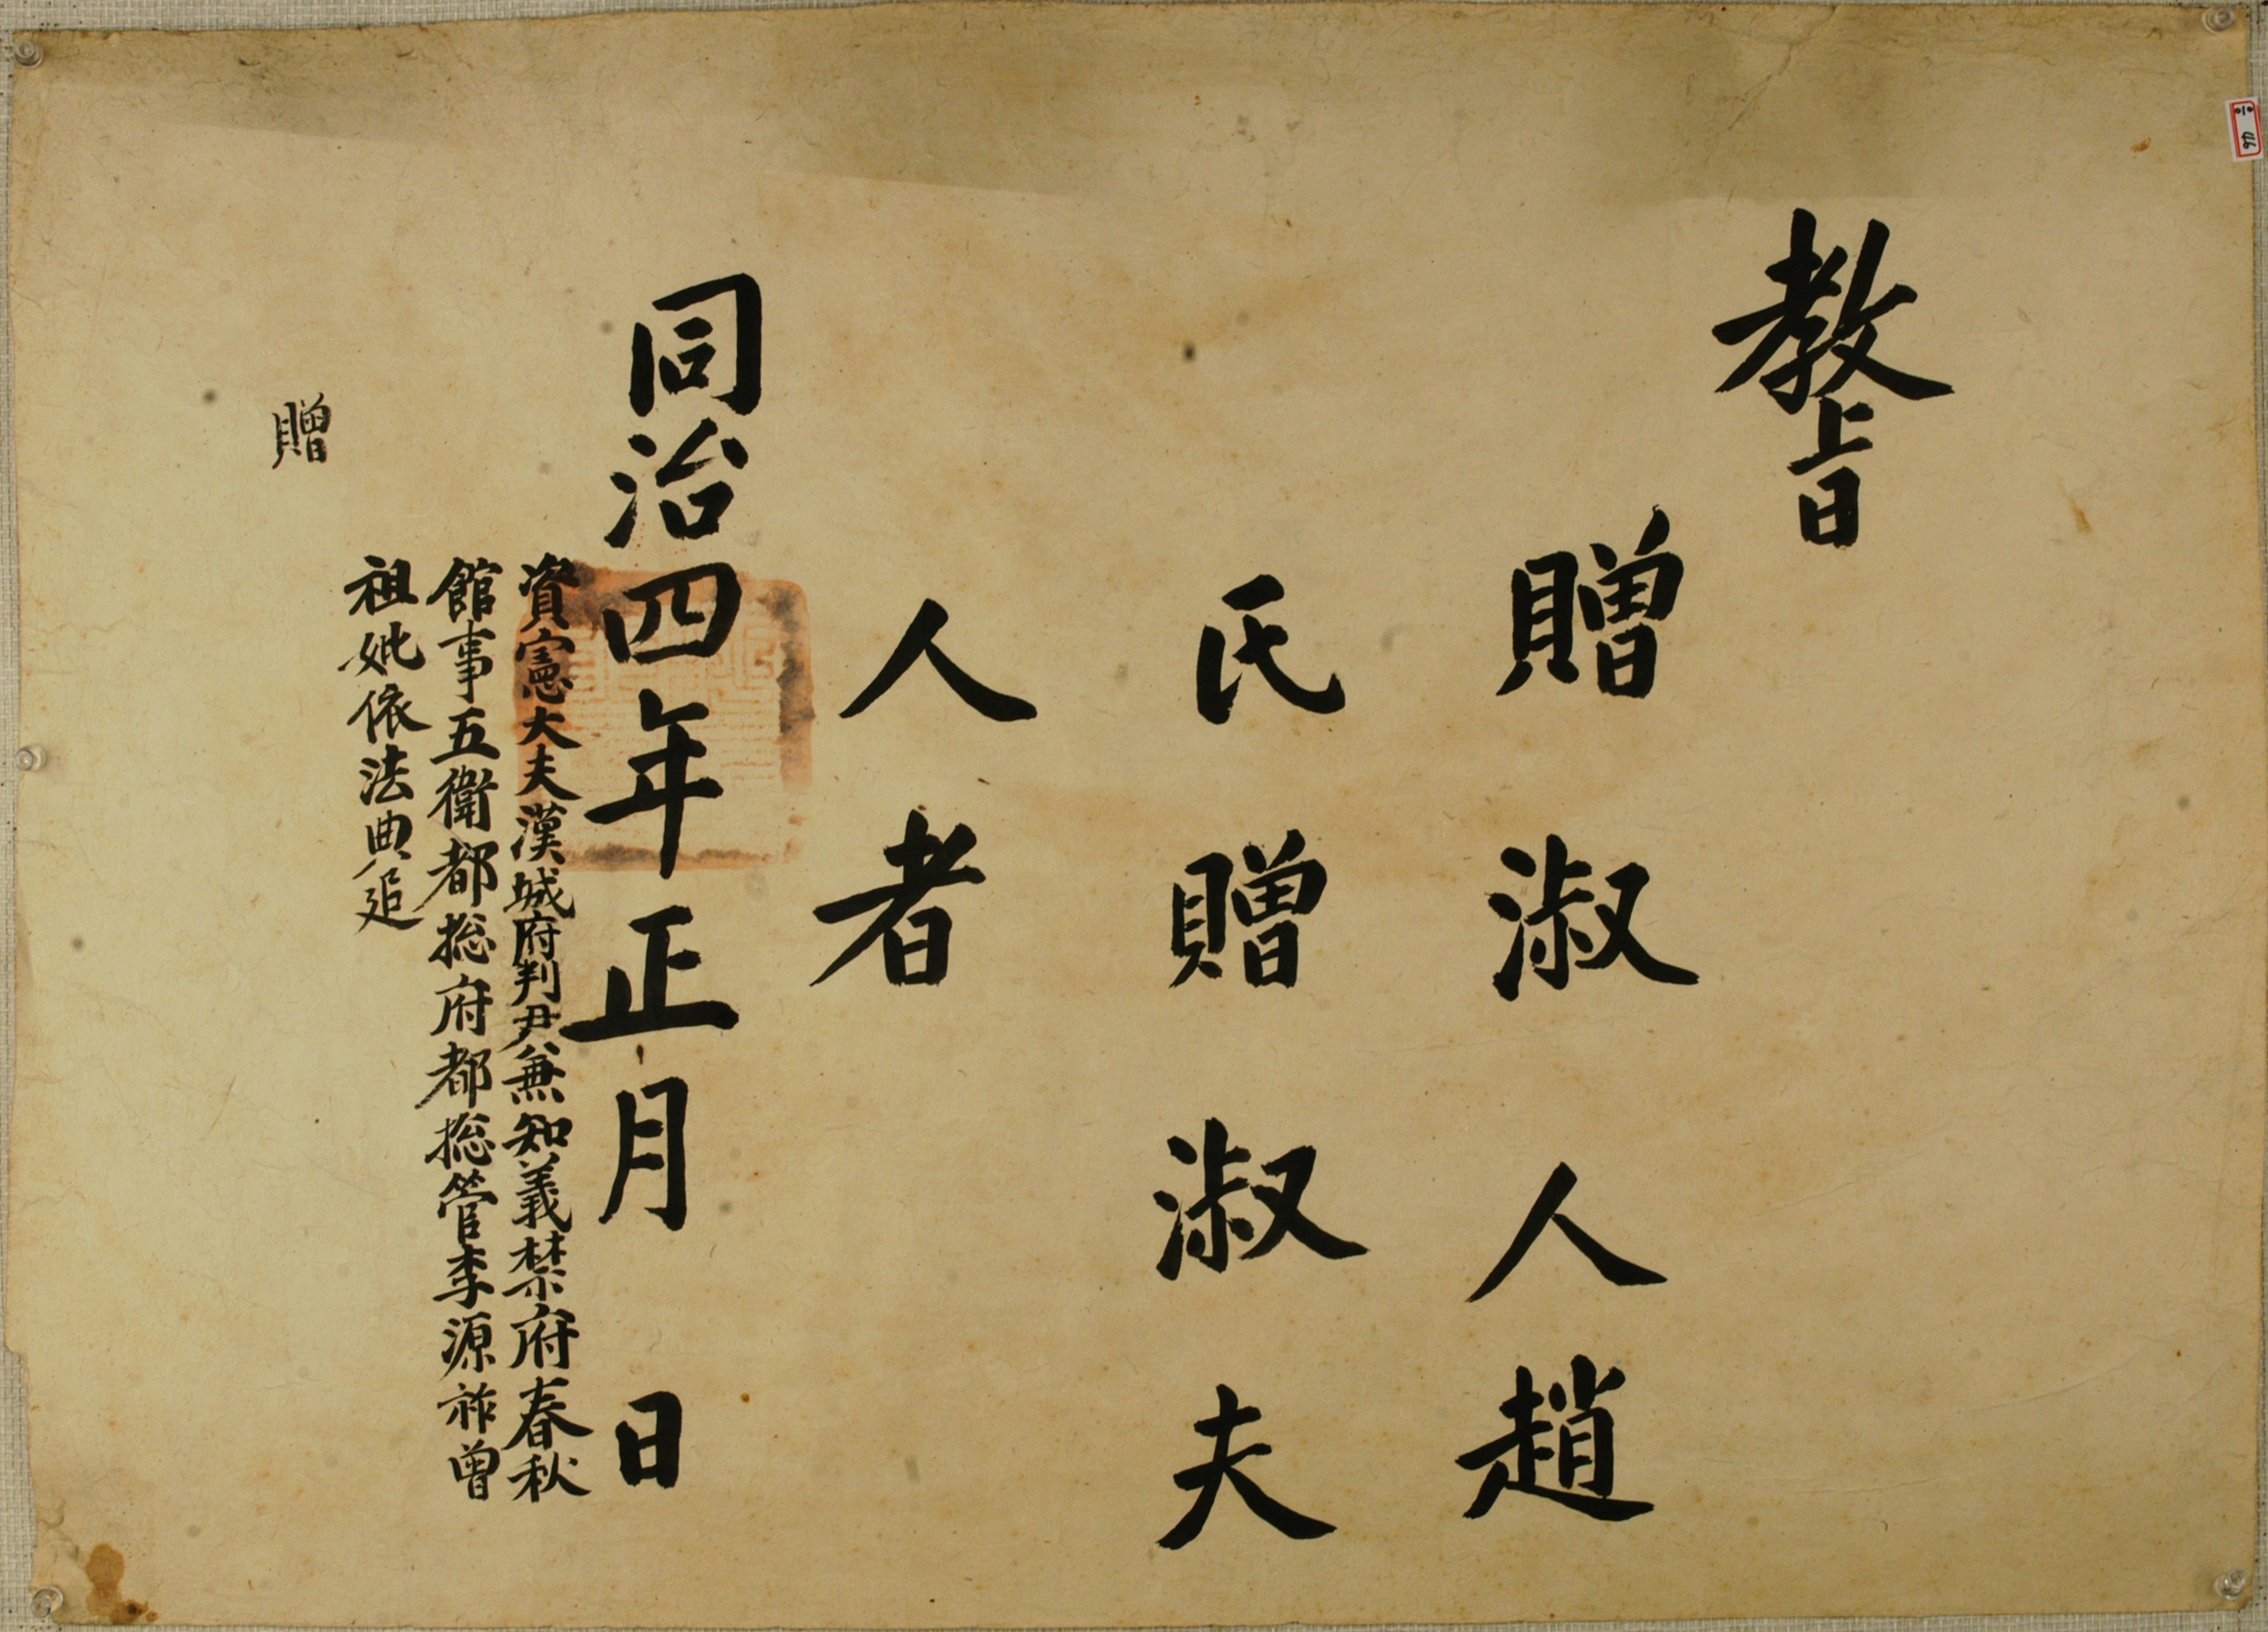 教旨
贈淑人趙
氏贈淑夫
人者
同治四年正月 日
資憲大夫漢城府判尹兼知義禁府春秋
館事五衛都揔府都揔管李源祚曾
祖妣依法典追
贈